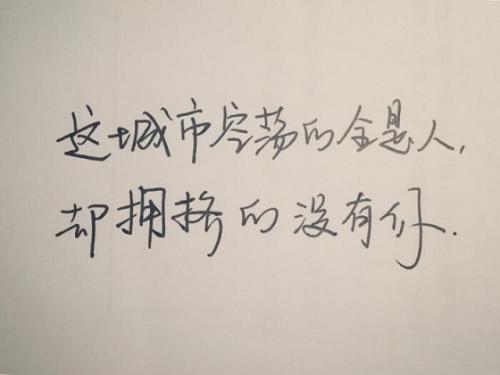 这城市空荡的全是人,
却拥挤的没有你.